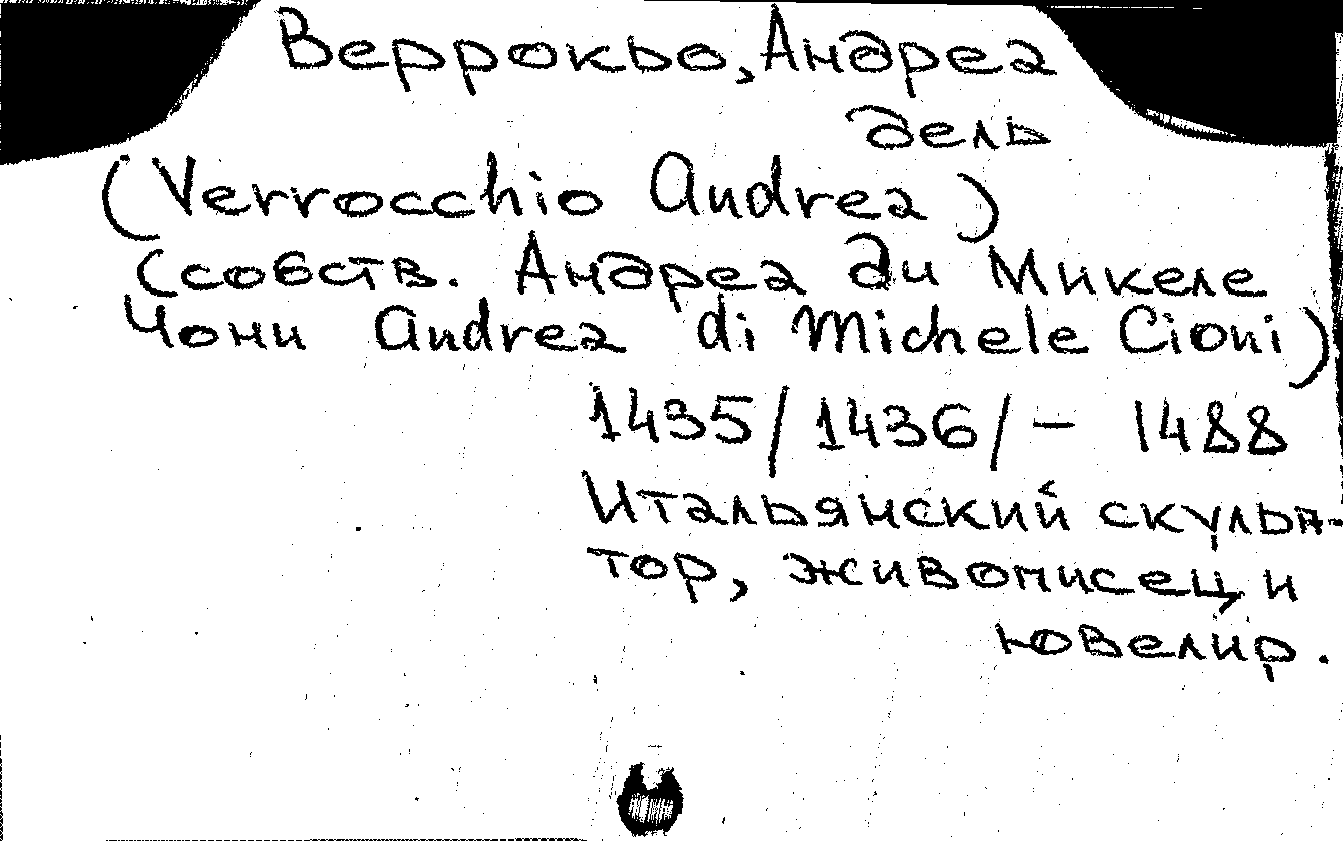 Веррокьо, Андреа
дель
(Verrocchio Andrea)
(собств. Андреа ди Микеле
Чони Andrea di Michele Cioni)
1435/1436/ – 1488
Итальянский скульп-
тор, живописец и
ювелир.